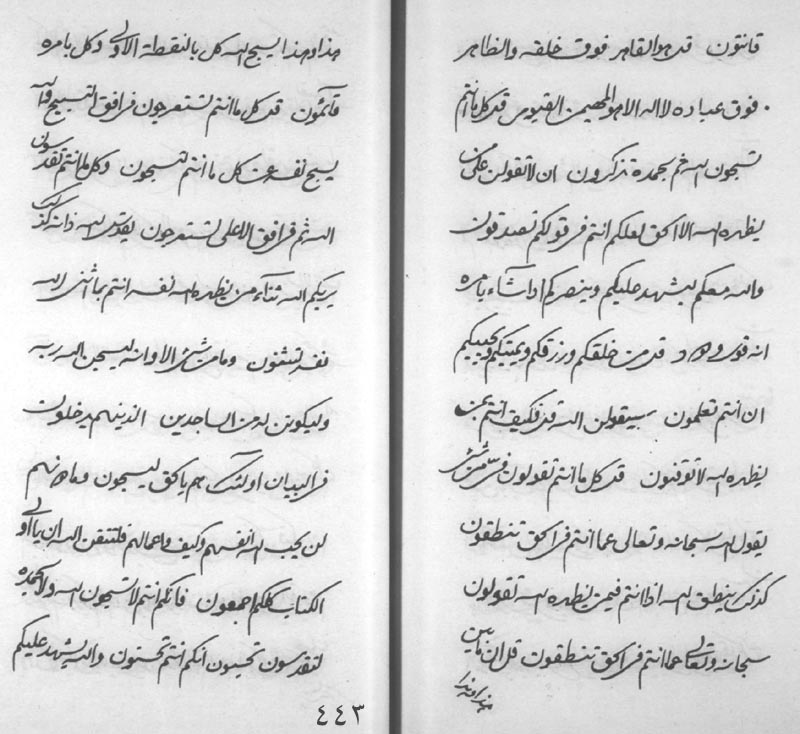 قانتون قل هو القاهر فوق خلقه والظاهر
فوق عباده لا اله الا هو المهيمن القيوم قل كل ما انتم
تسبحون الله ثم بحمده تذكرون ان لا تقولن على من
يظهره الله الا الحق لعلكم انتم في قولكم تصدقون
والله معكم يشهد عليكم وينصركم اذا شاء بامره
انه قوى ودود قل من خلقكم ورزقكم ويميتكم ويحييكم
ان انتم تعلمون سيقولن الله قل فكيف انتم بمن
يظهره الله لا توقنون قل كل ما انتم تقولون في
يقول الله سبحانه وتعالى عما انتم في الحق تنطقون
كذلك ينطق الله اذا انتم فيمن يظهره الله تقولون
سبحانه وتعالى عما انتم في الحق تنطقون قل ان
هذا وهذا
هذا وهذا يسبح الله كل بالنقطة الاولى وكل بامره
قائمون قل كل ما انتم تستعرجون في افق التسبيح والله
يسبح نفسه عن كل ما انتم تسبحون وكل ما انتم تقدسون
الله ثم في افق الاعلى لتستعرجون يقدس الله ذاته كذلك
يريكم الله ثناء من يظهره الله نفسه انتم بما اثنى الله
نفسه تستثنون وما من شئ الا وانه ليسبحن الله ربه
وليكونن له من الساجدين الذينهم يدخلون
في البيان اولئك هم بالحق ليسبحون وما هم
لن يحب الله انفسهم وكيف واعمالهم فلتتقن الله ان يا اولى
الكتاب كلكم اجمعون فانكم انتم لا تسبحون الله ولا بحمده
لتقدسون تحسبون انكم انتم تحسنون والله يشهد عليكم
٤٤٣